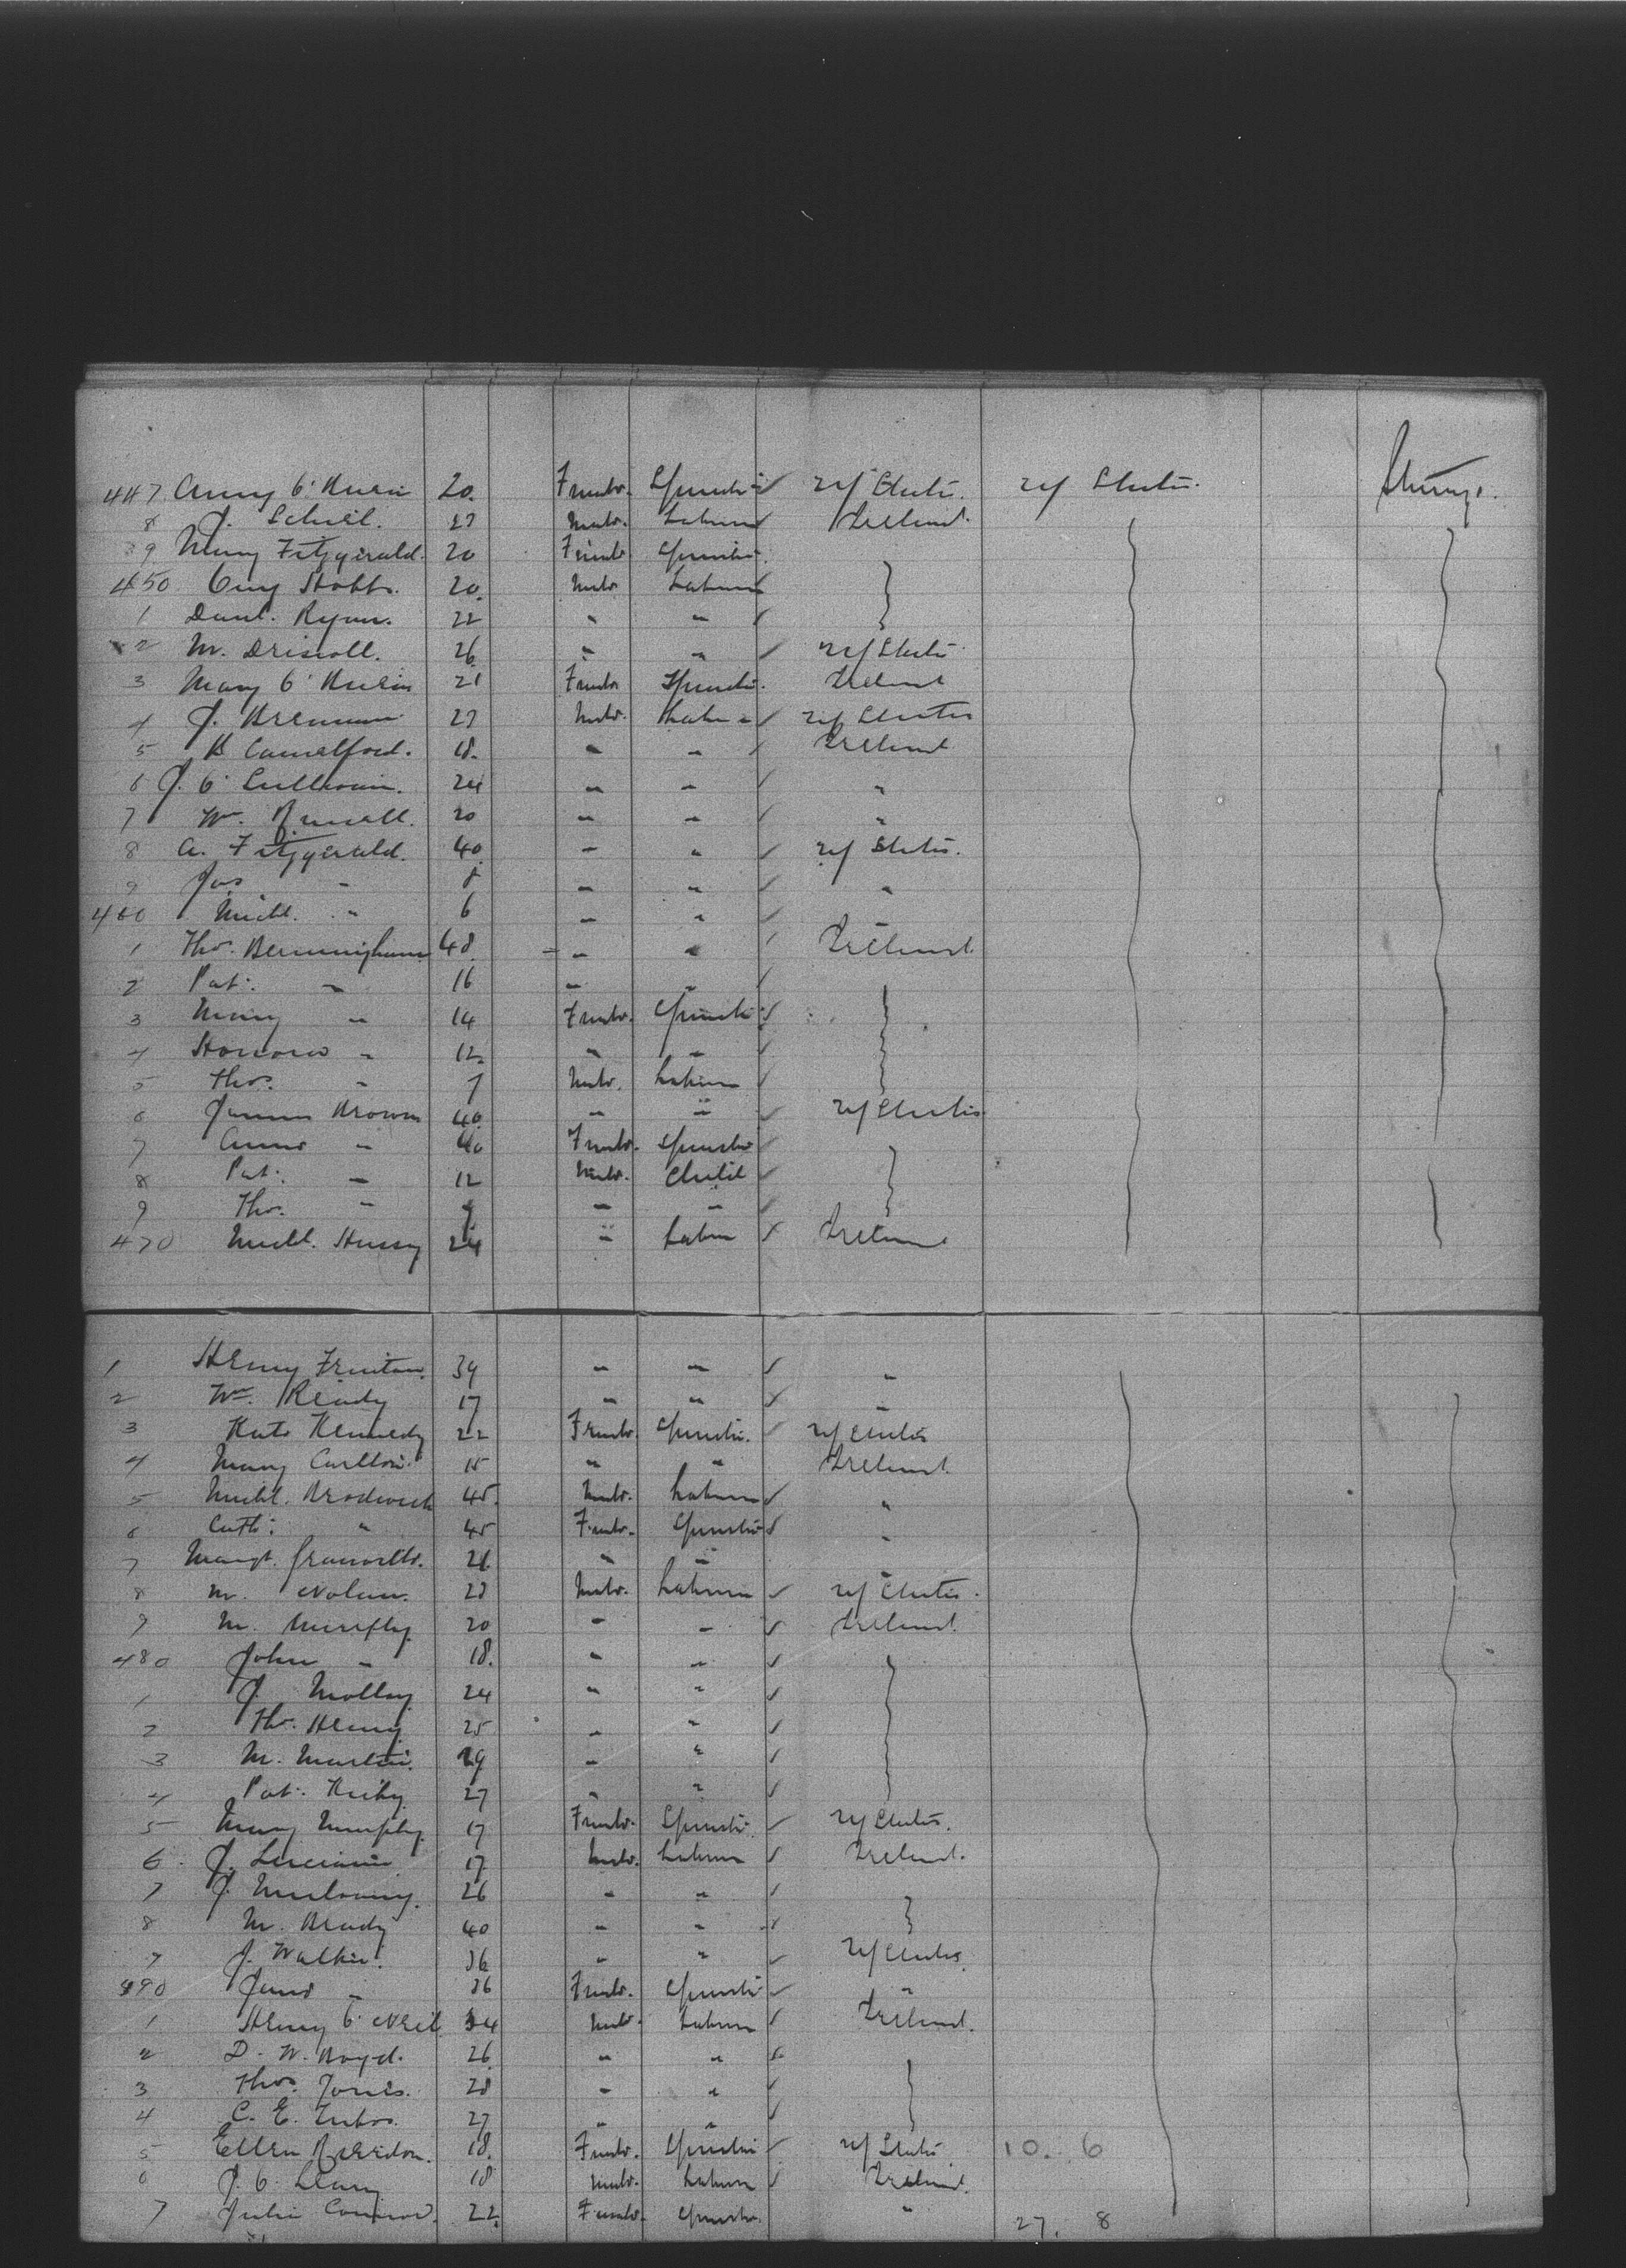 447 Anny O'Brien 20. Female. Spinster U States. U States. Steerage.
8 J. 27 Male. Labourer Ireland.
9 Mary Fitzgerald. 20 Female Spinster.
450 Stobbs. 20. Male Labourer
1 Danl. Ryan. 22 " "
2 M. Driscoll. 26 " " U States
3 Mary O'Brien 21 Female Spinster. Ireland
4 J. Brennan 27 Male. Labr U States
5 B Camelford. 18. " " Ireland
6 J. O'Sullivan. 24 " " "
7 Wm. 20 " " "
8 A. Fitzgerald. 40 " " U States.
9 Jas " 8 " " "
460 Michl. " 6 " "
1 Thos. Bermingham 48. " " Ireland.
2 Pat: " 16 " "
3 Mary " 14 Female. Spinster
4 Honora " 12 " "
5 Thos. " 7 Male. Labourer
6 James Brown 40 " " U States
7 Anne " 40 Female. Spinster
8 Pat: " 12 Male. Child
9 Thos. " " "
470 Michl. Hussey 24 " Labour Ireland
1 Henry 39 " " "
2 Wm. Ready 17 " " "
3 Kate Kennedy 22 Female Spinster. U States
4 Mary 15 " " Ireland.
5 Michl. Brodwick 45. Male. Labourer "
6 Cath: " 45 Female. Spinster "
7 Margt. Granville. 21. " " "
8 M. Nolan. 28 Male. Labourer U States.
9 M. Murphy. 20 " " Ireland.
480 John " 18. " "
1 J. Molloy. 24 " "
2 Thos. Henry. 25 " "
3 M. Martin. 29 " "
4 Pat. 27 " "
5 Mary Murphy. 17 Female. Spinster. U States.
6 J. 17 Male. Labourer Ireland.
7 J. 26 " "
8 M. Brady 40 " "
9 J. Walker. 36 " " U States.
490 Jane " 36 Female. Spinster "
1 Henry O'Neil 34 Male. Labourer Ireland.
2 D. W. Boyd. 26 " "
3 Thos. Jones. 28 " "
4 C. E. 27 " "
5 Ellen Reardon. 18. Female. Spinster U States 10. 6
6 J. O'Leary 18 Male. Labourer Ireland.
7 Julia Connor. 22. Female. Spinster. " 27. 8